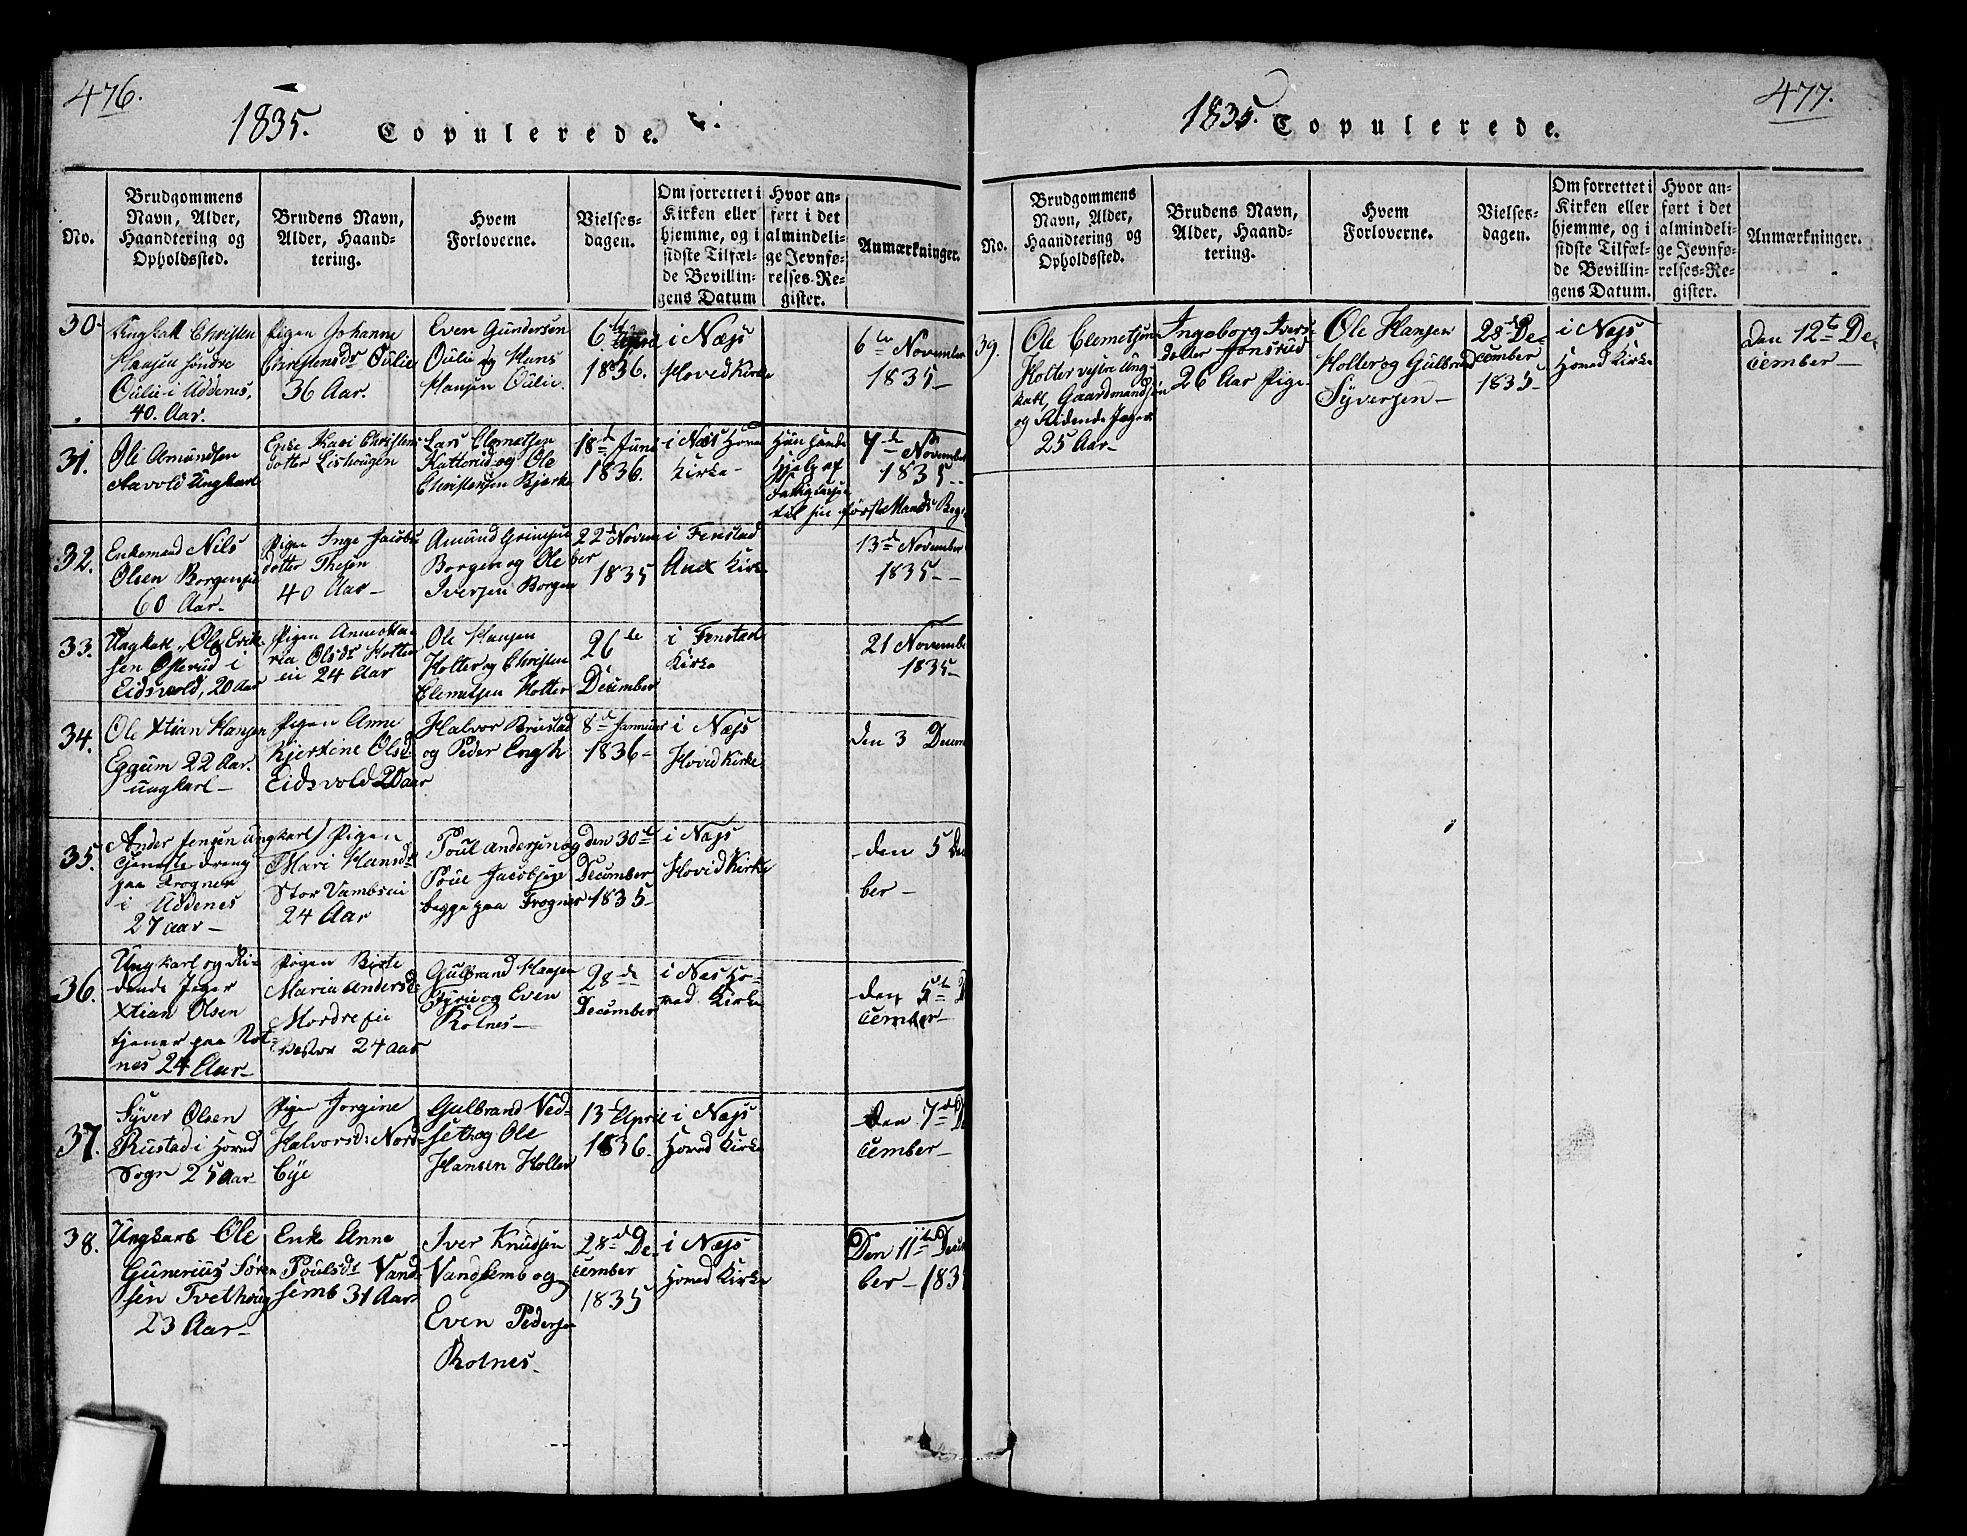 476.
1835. Copulerede.
No.
Brudgommens
Navn, Alder,
Haandtering og
Opholdssted.
Brudens Navn,
Alder, Haand-
tering.
Hvem
Forloverne.
Vielses-
dagen.
Om forrettet i
Kirken eller
hjemme, og i
sidste Tilfæl-
de Bevillin-
gens Datum
Hvor an-
ført i det
almindeli-
ge Jevnfø-
relses-Re-
gister.
Anmærkninger.
30.
Ungkarl Christen
Hansen søndre
Oulie i Uddenes,
40. Aar.
Pigen Johanne
Christensdr Oulie
36 Aar.
Even Gundersen
Oulie og Hans
Hansen Oulie.
6te
1836.
i Næss
Hovedkirke
6te November
1835
31.
Ole Amundsen
Aavold Ungkarl
Enke Kari Christens
dotter Lishougen
Lars Clemetsen
Katterud og Ole
Christensen Bjerke
18de Juni
1836.
i Næs Hoved
Kirke
Hun havde
Hjelp af
Fattigcassen
til sin første Mands Beg
7de November
1835
32.
Enkemand Nils
Olsen Borgen
60 Aar.
Pigen Inge Jacobs
dotter Thesen
40 Aar
Amund Grimsen
Borgen og Ole
Iversen Borgen
22d Novem
ber
1835
i Fenstad
Anex Kirke
13de November
1835
33.
Ungkarl Ole Erik-
sen Østerud i
Eidsvold, 20 Aar
Pigen Anne Ma-
ria Olsdr Holter
24 Aar
Ole Hansen
Holter og Christen
Clemetsen Holter
26de
December
i Fenstad
Kirke
21 November
1835
34.
Ole Xtian Hansen
Eggum 22 Aar.
ungkarl
Pigen Anne
Kjerstine Olsd.
Eidsvold 20 aar
Halvor Brustad
og Peder Engh
8d Januar
1836
i Næss
Hovedkirke.
den 3 Decem
35.
Ander Jensen ungkarl
tjeneste dreng
paa Frogner
i Uddenes
27 aar
Pigen
Mari Hansdr
Stor Vambsei
24 Aar
Poul Andersen og
Poul Jacobsen
begge paa Frogner
den 30te
December
1835
i Næss
Hovedkirke
den 5 De
ber
36.
Ungkarl og Ri-
dende Jeger
Xtian Olsen
tjener paa Rot-
nes 24 Aar
Pigen Birte
Maria Andersd.
Mordre
24 aar
Gulbrand Hansen
Fyrie og Even
Rotnes
28de
December
i Næs Ho-
ved Kirke
den 5te D
cember
37.
Syver Olsen
Rustad i Hoved
Sogn 25 Aar
Pigen Jorgine
Halvorsd. Nord-
bye
Gulbrand Ved-
seth og Ole
Hansen Holter
13d April
1836.
i Næss
Hoved Kirke
den 7de De
cember
38.
Ungkarl Ole
Gunerius Søren
sen Tvethoug
23 Aar
Enke Anne
Poulsdr Vand-
semb 31 Aar
Iver Knudsen
Vandsemb og
Even Pedersen
Rotnes
28de De-
cember
1835
i Næss
Hoved Kirke
Den 11te Decem
ber 183
477.
1835. Copulerede.
No.
Brudgommens
Navn, Alder,
Haandtering og
Opholdssted.
Brudens Navn,
Alder, Haand-
tering.
Hvem
Forloverne.
Vielses-
dagen.
Om forrettet i
Kirken eller
hjemme, og i
sidste Tilfæl-
de Bevillin-
gens Datum.
Hvor an-
ført i det
almindeli-
ge Jevnfø-
relses-Re-
gister.
Anmærkninger.
39.
Ole Clemetsen
Holter vestre Ung-
karl, Gaardmandsøn
og Ridende Jeger
25 Aar
Ingeborg Ivers
dotter Jonsrud
26 Aar Pige
Ole Hansen
Holter og Gulbrand
Syversen
28de De-
cember
1835
i Næss
Hoved Kirke
den 12te De-
cember